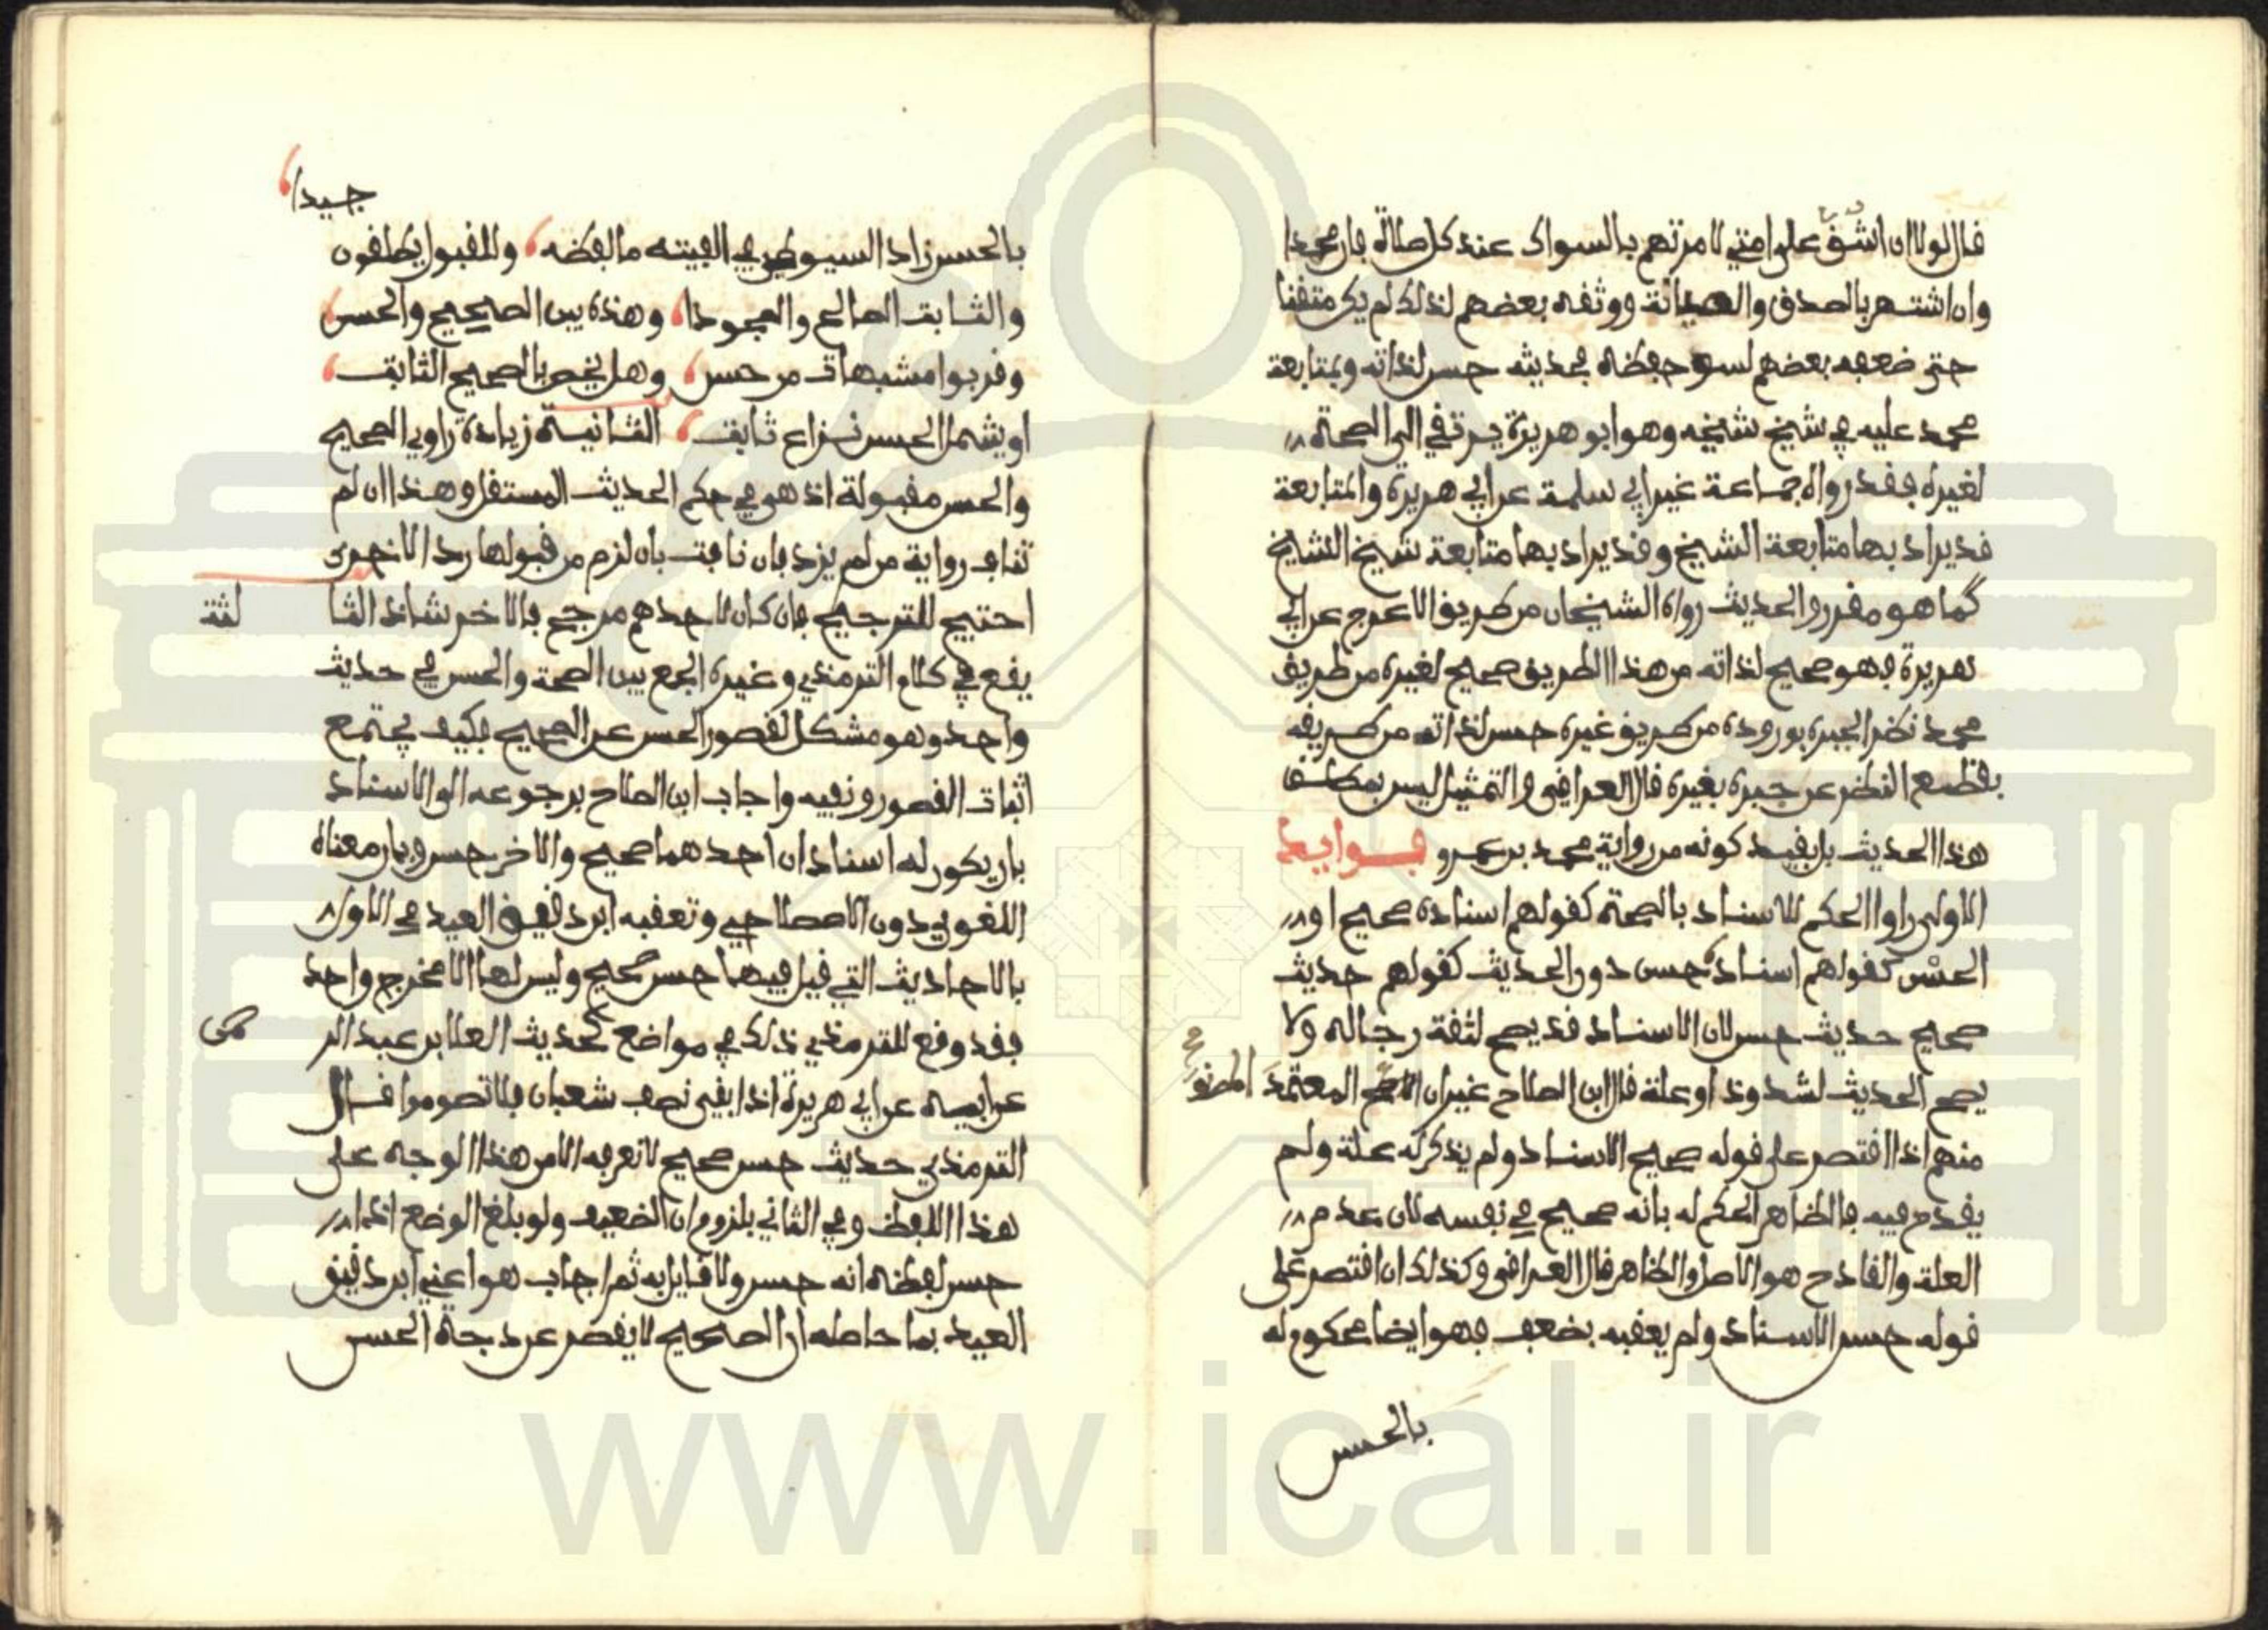 قال لولا ان اشق على امتي لامرتهم بالسواك عند كل صلاة فان محمدا
وان اشتهر بالصدق والصيانة ووثقه بعضهم لذلك لم يكن متقنا
حتى ضعفه بعضهم لسوء حفظه فحديثه حسن لذاته وبمتابعة
محمد عليه في شيخ شيخه وهو ابو هريرة يرتقي الى الصحة
لغيره فقد رواه جماعة غير ابي سلمة عن ابي هريرة والمتابعة
قد يراد بها متابعة الشيخ وقد يراد بها متابعة شيخ الشيخ
كما هو مقرر والحديث رواه الشيخان من طريق الاعرج عن ابي
هريرة فهو صحيح لذاته من هذا الطريق صحيح لغيره من طريق
محمد نظرا لجبره بوروده من طريق غيره حسن لذاته من طريقه
بقطع النظر عن جبره بغيره قال العراقي والتمثيل ليس بمطلق
هذا الحديث بل بقيد كونه من رواية محمد بن عمرو فوايد
الاولى راوا الحكم للاسناد بالصحة كقولهم اسناده صحيح او
الحسن كقولهم اسناده حسن دون الحديث كقولهم حديث
صحيح حديث حسن لان الاسناد قد يصح لثقة رجاله ولا
يصح الحديث لشذوذ او علة قال ابن الصلاح غير ان المعتمد المصنف
منهم اذا اقتصر على قوله صحيح الاسناد ولم يذكر له علة ولم
يقدح فيه فالظاهر الحكم له بانه صحيح في نفسه لان عدم
العلة والقادح هو الاصل والظاهر قال العراقي وكذلك ان اقتصر على
قوله حسن الاسناد ولم يعقبه بضعف فهو ايضا محكوم له
بالحسن
جيدا
بالحسن زاد السيوطي في الفيته ما لفظه وللقبول يطلقون
والثابت الصالح والمجودا وهذه بين الصحيح والحسن
وقربوا مشبهات من حسن وهل يخص بالصحيح الثابت
او يشمل الحسن نزاع ثابت الثانية زيادة راوي الصحيح
والحسن مقبولة اذ هو في حكم الحديث المستقل وهذا ان لم
تناف رواية من لم يزد فان نافت بان لزم من قبولها رد الاخرى
احتيج للترجيح فان كان لاحدهم مرجح فالاخر شاذ الثا لثة
يقع في كلام الترمذي وغيره الجمع بين الصحة والحسن في حديث
واحد وهو مشكل لقصور الحسن عن الصحيح فكيف يجتمع
اثبات القصور ونفيه واجاب ابن الصلاح برجوعه الى الاسناد
بان يكون له اسنادان احدهما صحيح والاخر حسن وبان معناه
اللغوي دون الاصطلاحي وتعقبه ابن دقيق العيد في الاول
بالاحاديث التي قيل فيها حسن صحيح وليس لها الا مخرج واحد
فقد وقع للترمذي ذلك في مواضع كحديث العلا بن عبد الر حمن
عن ابيه عن ابي هريرة اذا بقي نصف شعبان فلا تصوموا قال
الترمذي حديث حسن صحيح لا نعرفه الا من هذا الوجه على
هذا اللفظ وفي الثاني بلزوم ان الضعيف ولو بلغ الوضع اذا
حسن لفظه انه حسن ولا قايل به ثم اجاب هو اعني ابن دقيق
العيد بما حاصله ان الصحيح لا يقصر عن درجة الحسن
www.ical.ir